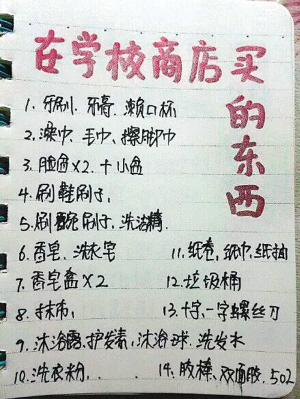 在学校商店买的东西
1. 牙刷、牙膏、漱口杯
2. 澡巾、毛巾、擦脚巾
3. 脸盆×2. + 小盆
4. 刷鞋刷子,
5. 刷碗刷子, 洗洁精.
6. 香皂、洗衣皂 11. 纸卷, 纸巾, 纸抽
7. 香皂盒×2 12. 垃圾桶
8. 抹布, 13. 十字, 一字螺丝刀
9. 沐浴露, 护发素, 沐浴球. 洗发水
10. 洗衣粉, 14. 胶棒, 双面胶, 502